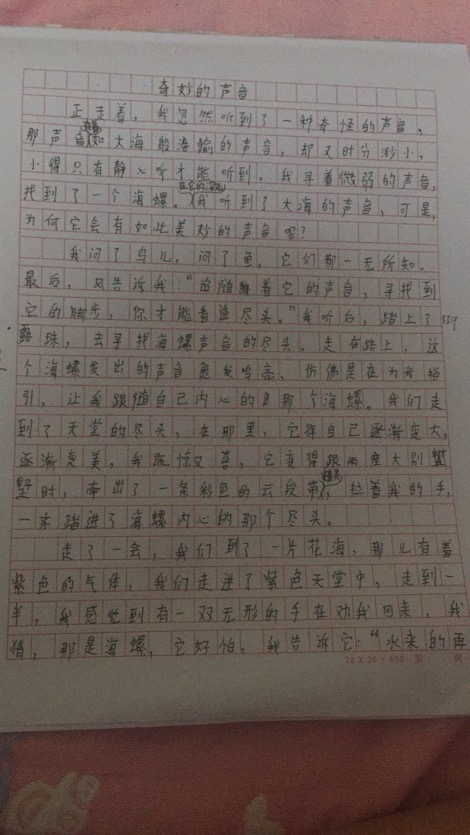 奇妙的声音
正走着，我忽然听到了一种奇怪的声音，
那声音如大海般海输的声音，却又时分渺小，
小得只有静心听才能听到。我寻着微弱的声音，
找到了一个海螺。在它的我听到了大海的声音，可是，
为何它会有如此美好的声音呢？
我问了鸟儿，问了鱼，它们都一无所知。
最后，风告诉我：“追随着它的声音，寻找到
它的脚步，你才能看造尽头。”我听后，踏上了
露珠，去寻找海螺声音的尽头。走在路上，这
个海螺发出的声音愈发鸣亮，仿佛是在为我指
引，让我跟随自己内心的那个海螺。我们走
到了天堂的尽头，在那里，它将自己逐渐变大，
逐渐变美，我既惊又喜，它变得跟两座大别
墅时，牵出了一条彩色的云段带，拉着我的手，
一来踏进了海螺内心的那个尽头。
走了一会，我们到了一片花海，那儿有着
紫色的气体，我们走进了紫色天堂中，走到一
半，我感觉到有一双无形的手在劝我回来，我
猜，那是海螺，它好怕，我告诉它：“水来的再
20 X 20 = 400